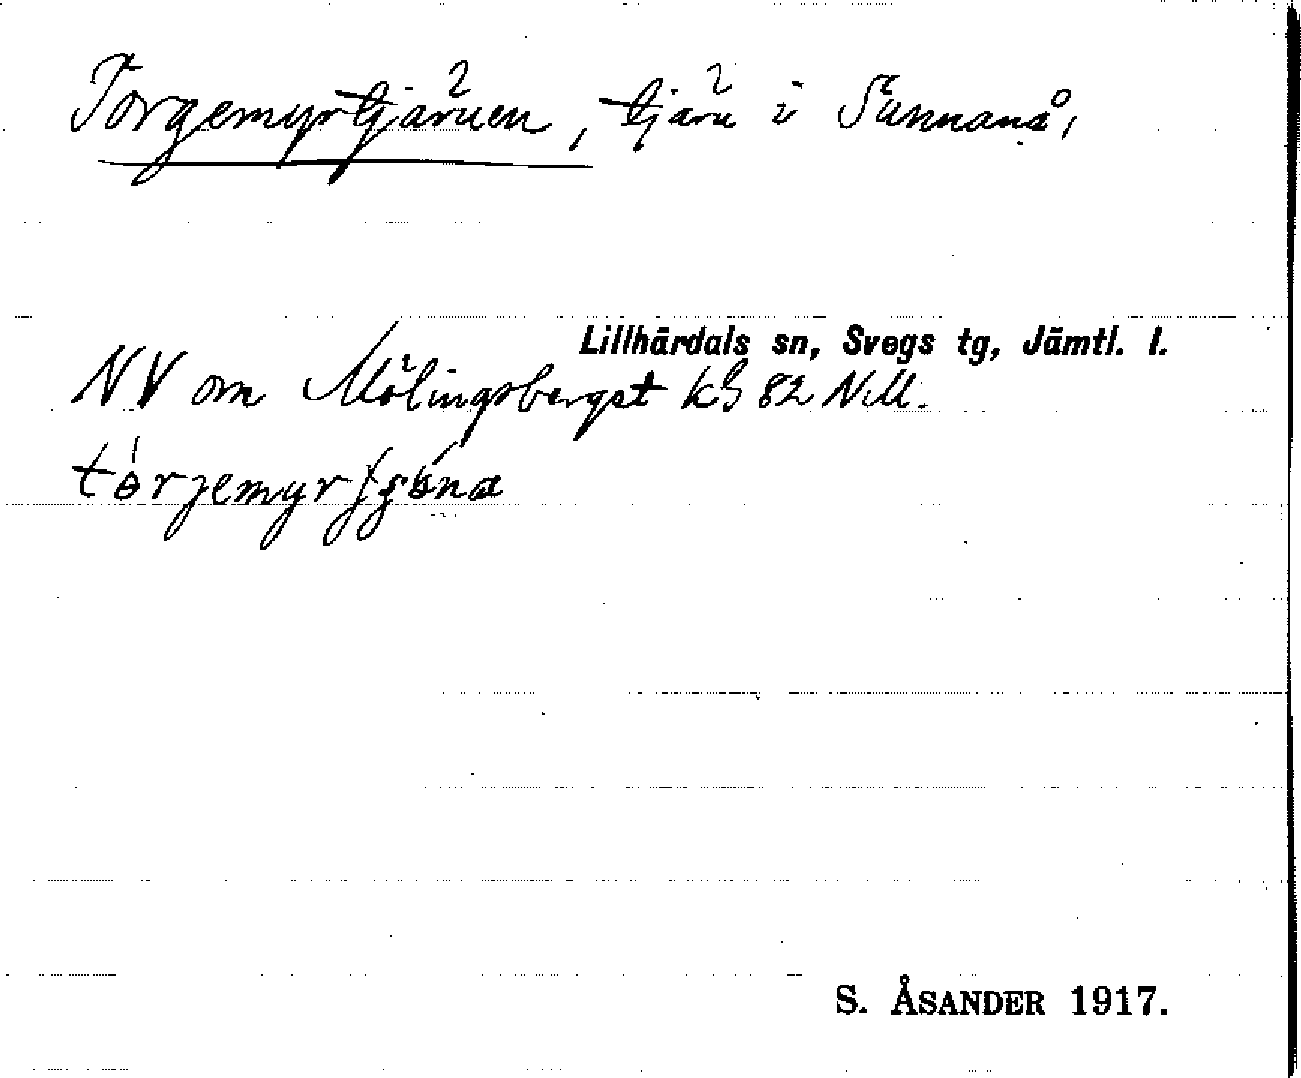 Torgemyrtjärnen, tjärn i Sunnanå,
Lillhärdals sn, Svegs tg, Jämtl. l.
NV om Mölingsbergst kG 82 NM.
S. ÅSANDER 1917.